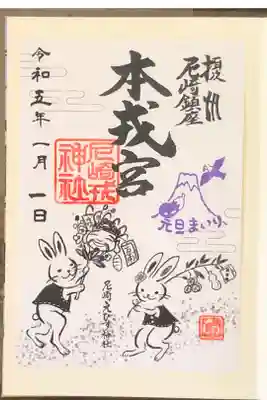 摂州
尼崎鎮座
本戎宮
令和五年一月一日
尼崎戎
神社
元旦まいり
尼崎えびす神社